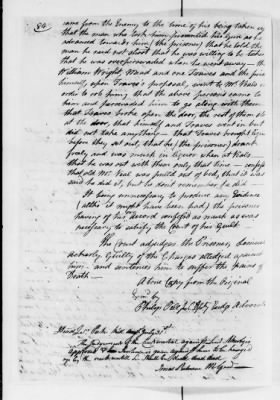 84.
came from the Enemy to the time of his being taken —
that the man who took him presented his Gun as he
advanced towards him, the prisoner, that he told the
man he need not shoot that he was willing to be taken
that he was overpersuaded when he went away — th
William Wright, Maud and one Traves and the pri
himself, upon Traves's proposal, went to Mr. Veals
order to rob him, that the above persons came to
him and persuaded him to go along with them
that Traves broke open the door, the rest of them
at the door, that himself and Traves went in but
did not take anything — that Traves brought
before they set out, that he / the prisoner / drank
freely and was much in liquor when at Veals
that he was out with them only that time —
that old Mr. Veal was pulled out of bed, that it was
said he did it, but he don't remember he did —
It being unnecessary to produce any Evidence
(altho' it might have been had) the prisoner
having of his own accord confessed as much as was
necessary to satisfy the Court of his Guilt.
The Court adjudges the Prisoner,
Guilty of the Charges alledged against
him, and sentences him to suffer the pains of
Death —
A true Copy from the Original
Exam'd by
Philip Judge Advocate
Head Qrs. July 31st
The Judgement of the Court martial against
approved & him to be hanged
by the neck until he
Israel Putnam M. Genl.